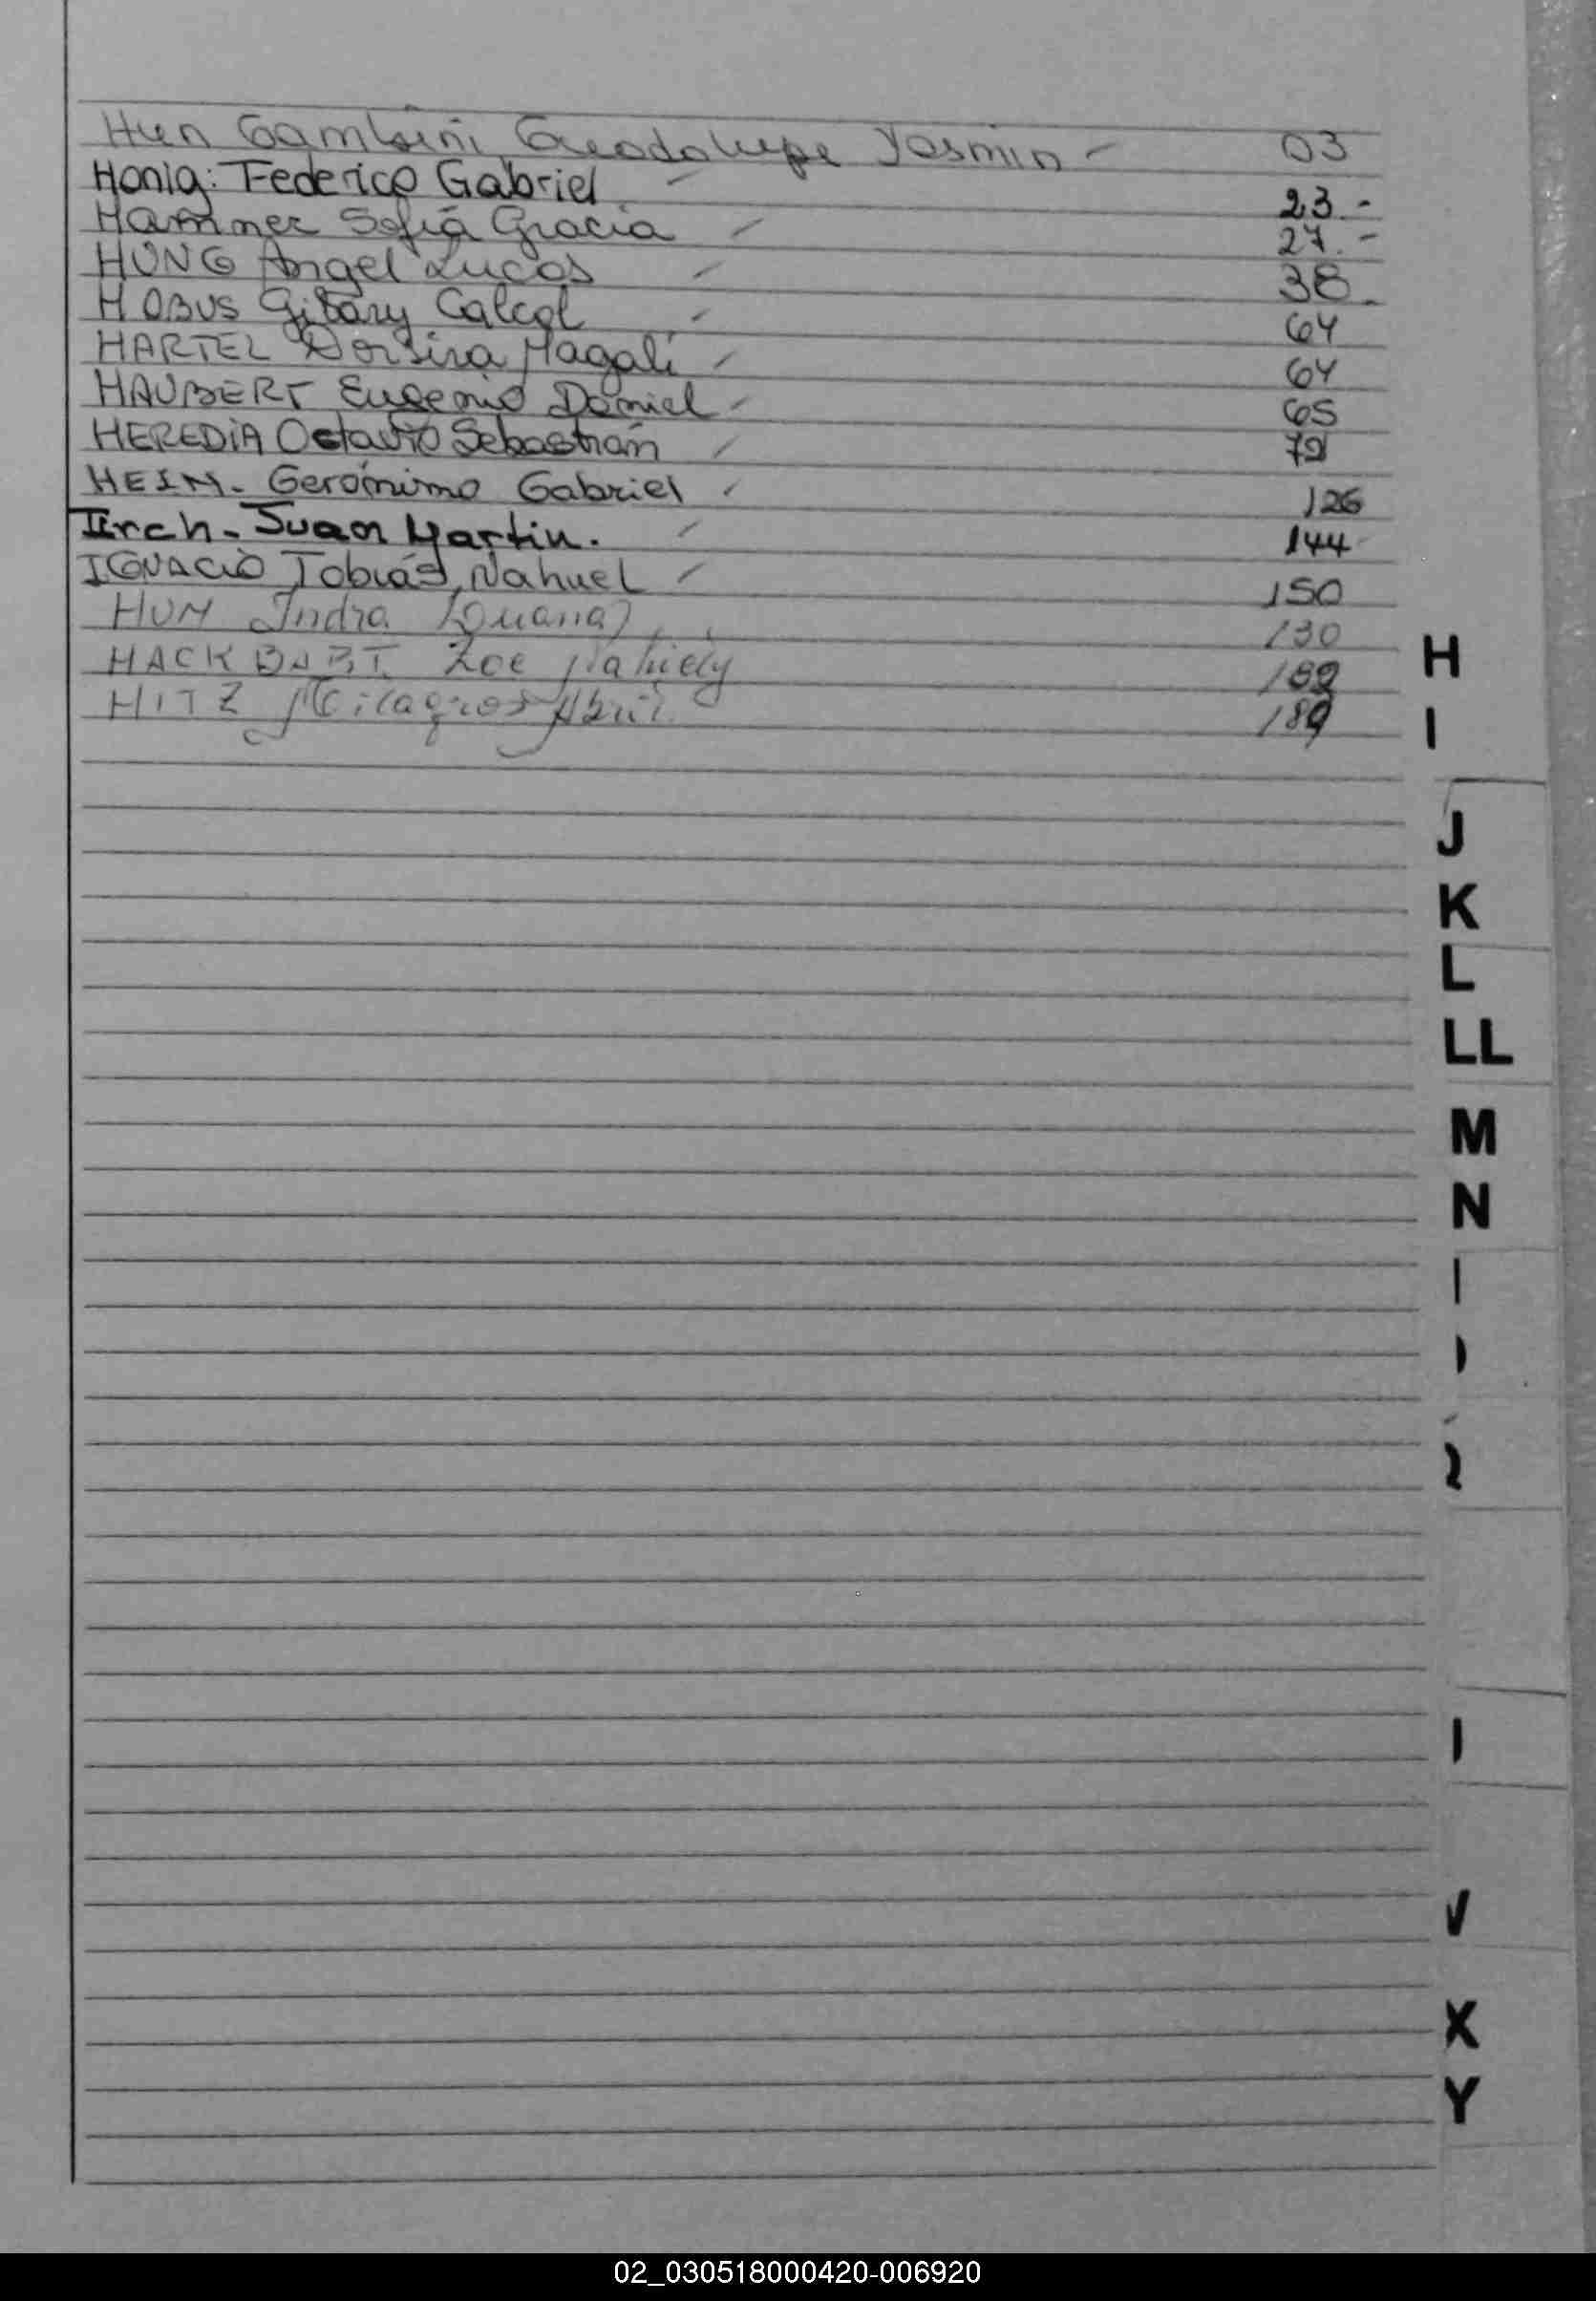 Hun Gambini Guadalupe Yasmin - 03
Honig: Federico Gabriel 23.-
Hammer Sofia Gracia 27.-
HUNG Angel Lucas 38.
HOBUS Gibary Calcol 64
HARTEL Magali 64
HAUBERT Eugenio Daniel 65
HEREDIA Octavio Sebastián 79
HEIM. Gerónimo Gabriel 126
Irch. Juan Martin. 144
IGNACIO Tobías Nahuel 150
HUM Indra Luana 130
HACKBART Zoe Nahiely 189
HITZ Milagros Abril 189
H
I
J
K
L
LL
M
N
X
Y
02_030518000420-006920